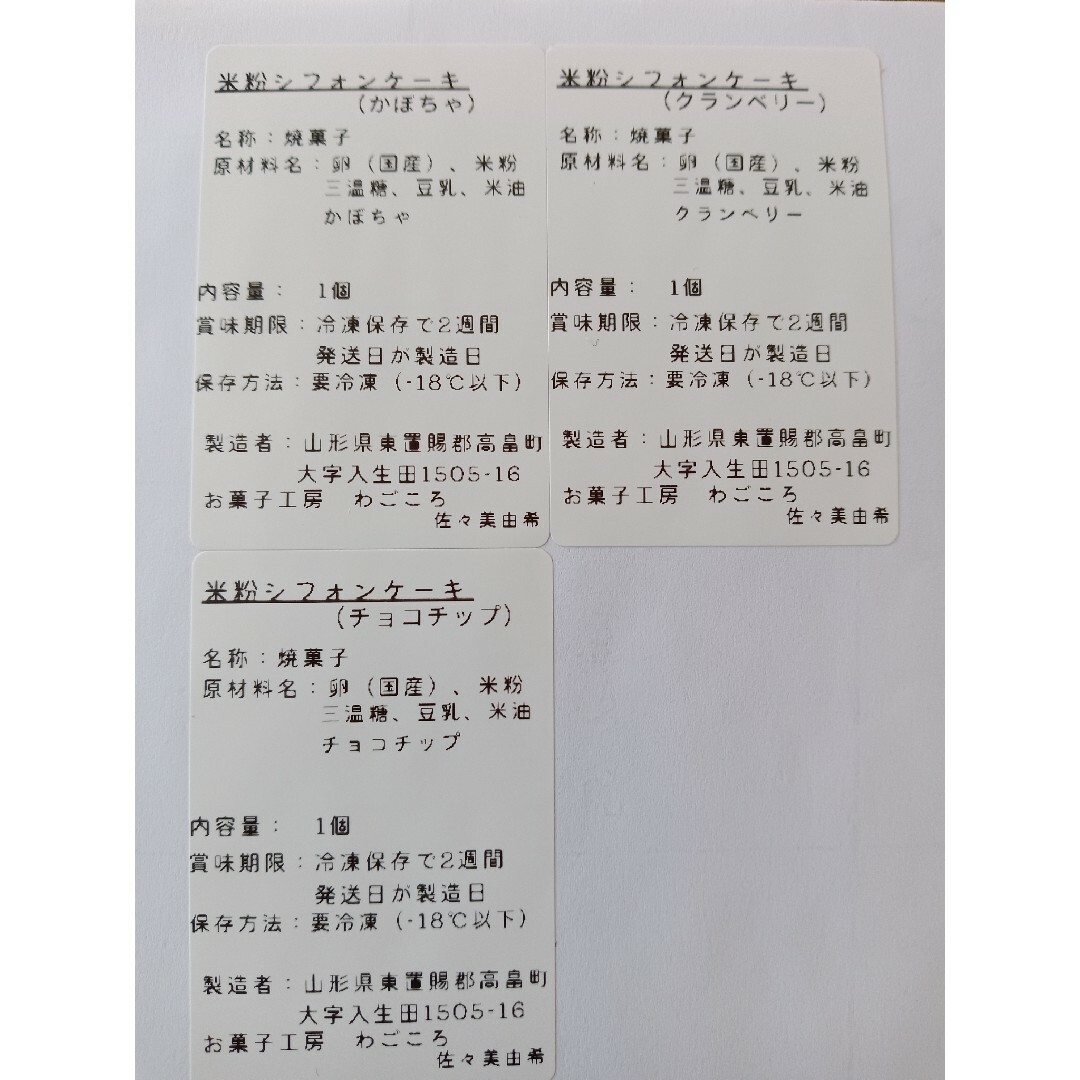 米粉シフォンケーキ
(かぼちゃ)
名称：焼菓子
原材料名：卵（国産）、米粉
三温糖、豆乳、米油
かぼちゃ
内容量： 1個
賞味期限：冷凍保存で2週間
発送日が製造日
保存方法：要冷凍（-18℃以下）
製造者：山形県東置賜郡高畠町
大字入生田1505-16
お菓子工房 わごころ
佐々美由希
米粉シフォンケーキ
(クランベリー)
名称：焼菓子
原材料名：卵（国産）、米粉
三温糖、豆乳、米油
クランベリー
内容量： 1個
賞味期限：冷凍保存で2週間
発送日が製造日
保存方法：要冷凍（-18℃以下）
製造者：山形県東置賜郡高畠町
大字入生田1505-16
お菓子工房 わごころ
佐々美由希
米粉シフォンケーキ
(チョコチップ)
名称：焼菓子
原材料名：卵（国産）、米粉
三温糖、豆乳、米油
チョコチップ
内容量： 1個
賞味期限：冷凍保存で2週間
発送日が製造日
保存方法：要冷凍（-18℃以下）
製造者：山形県東置賜郡高畠町
大字入生田1505-16
お菓子工房 わごころ
佐々美由希